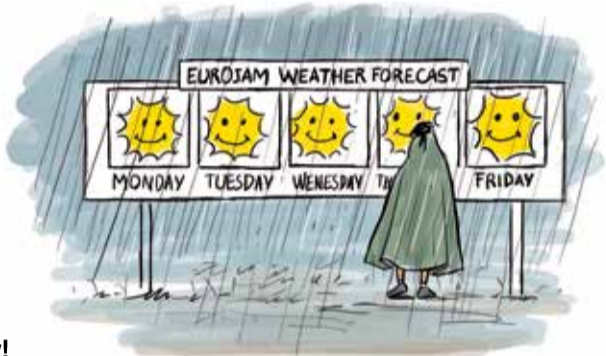 EUROJAM WEATHER FORECAST
MONDAY TUESDAY WENESDAY TH FRIDAY
!